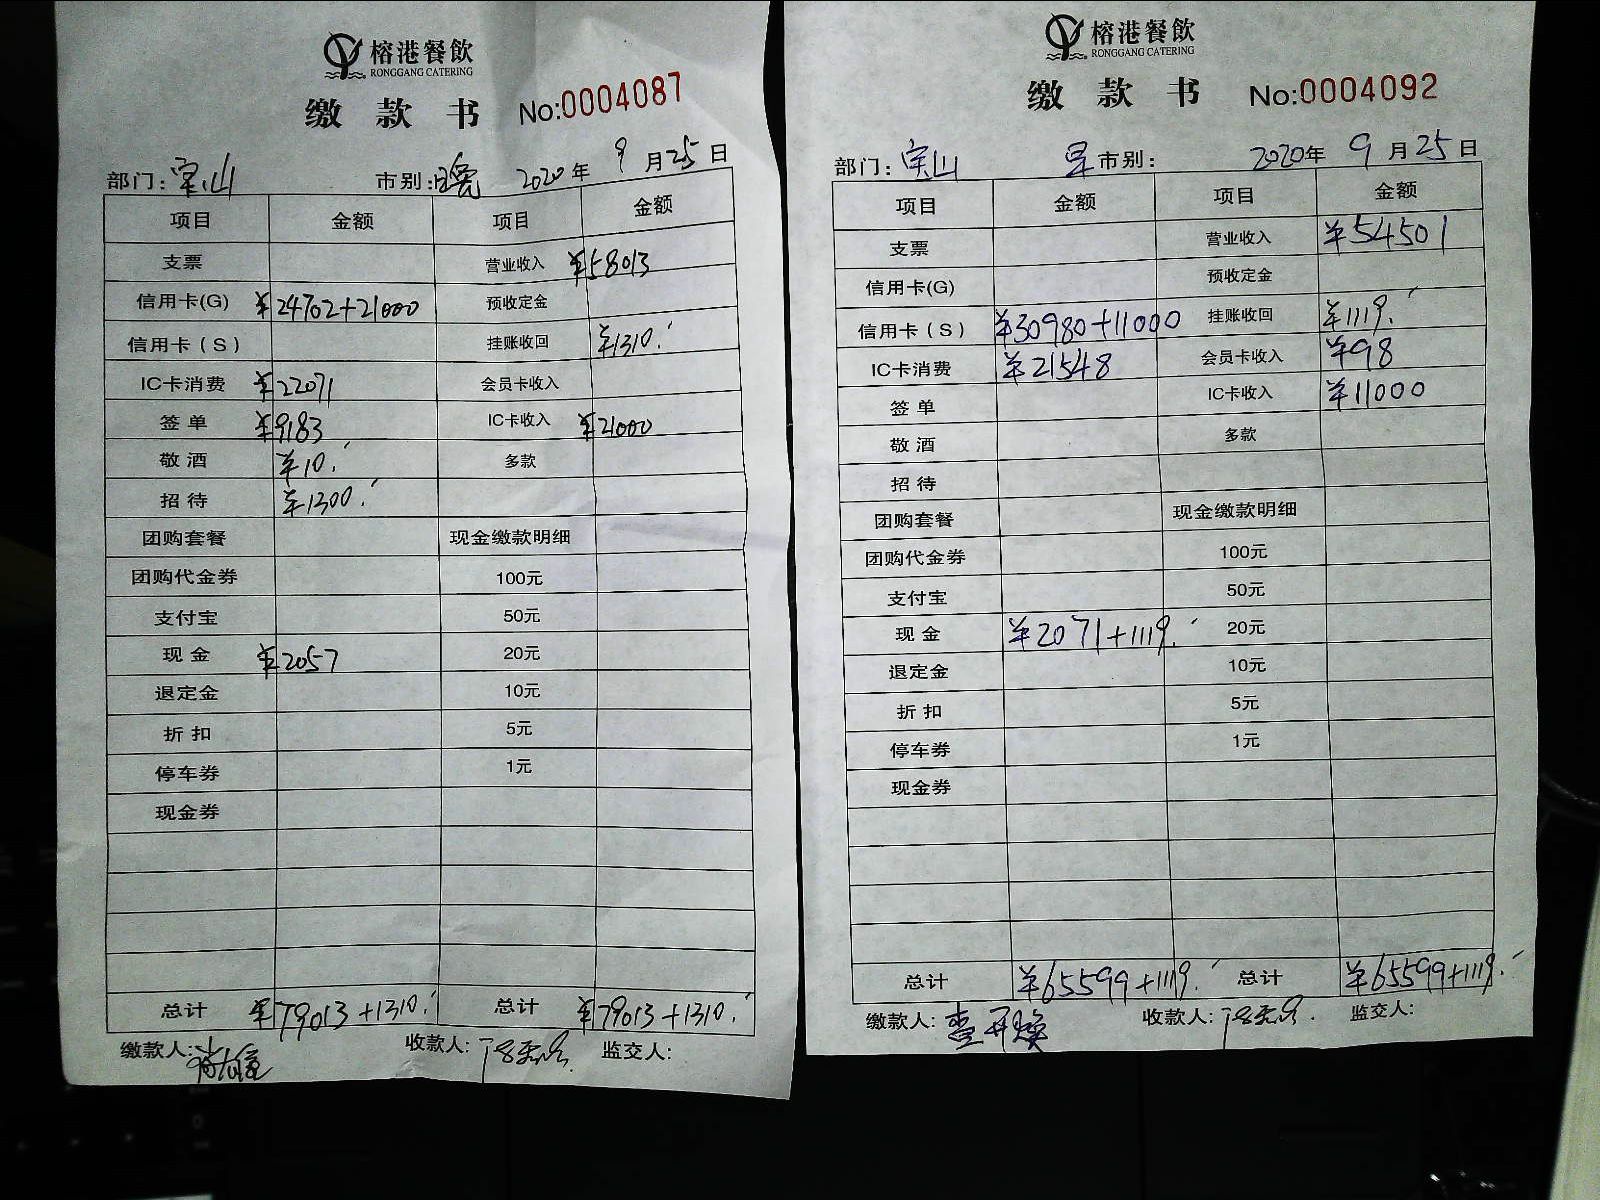 榕港餐飲
RONGGANG CATERING
缴 款 书 No:0004087
部门: 宝山 市别: 晚 2020 年 9 月 25 日
项目 金额 项目 金额
支票 营业收入 ¥58013
信用卡(G) ¥24702+21000 预收定金
信用卡(S) 挂账收回 ¥1310.-
IC卡消费 ¥22071 会员卡收入
签 单 ¥9183 IC卡收入 ¥21000
敬 酒 ¥10.- 多款
招 待 ¥1300.-
团购套餐 现金缴款明细
团购代金券 100元
支付宝 50元
现 金 ¥2057 20元
退定金 10元
折 扣 5元
停车券 1元
现金券
总计 ¥79013+1310.- 总计 ¥79013+1310.-
缴款人: 收款人: 监交人:
榕港餐飲
RONGGANG CATERING
缴 款 书 No:0004092
部门: 宝山 早 市别: 2020年 9 月 25 日
项目 金额 项目 金额
支票 营业收入 ¥54501
信用卡(G) 预收定金
信用卡(S) ¥30980+11000 挂账收回 ¥1119.-
IC卡消费 ¥21548 会员卡收入 ¥98
签 单 IC卡收入 ¥11000
敬 酒 多款
招 待
团购套餐 现金缴款明细
团购代金券 100元
支付宝 50元
现 金 ¥2071+1119.- 20元
退定金 10元
折 扣 5元
停车券 1元
现金券
总计 ¥65599+1119.- 总计 ¥65599+1119.-
缴款人: 收款人: 监交人: